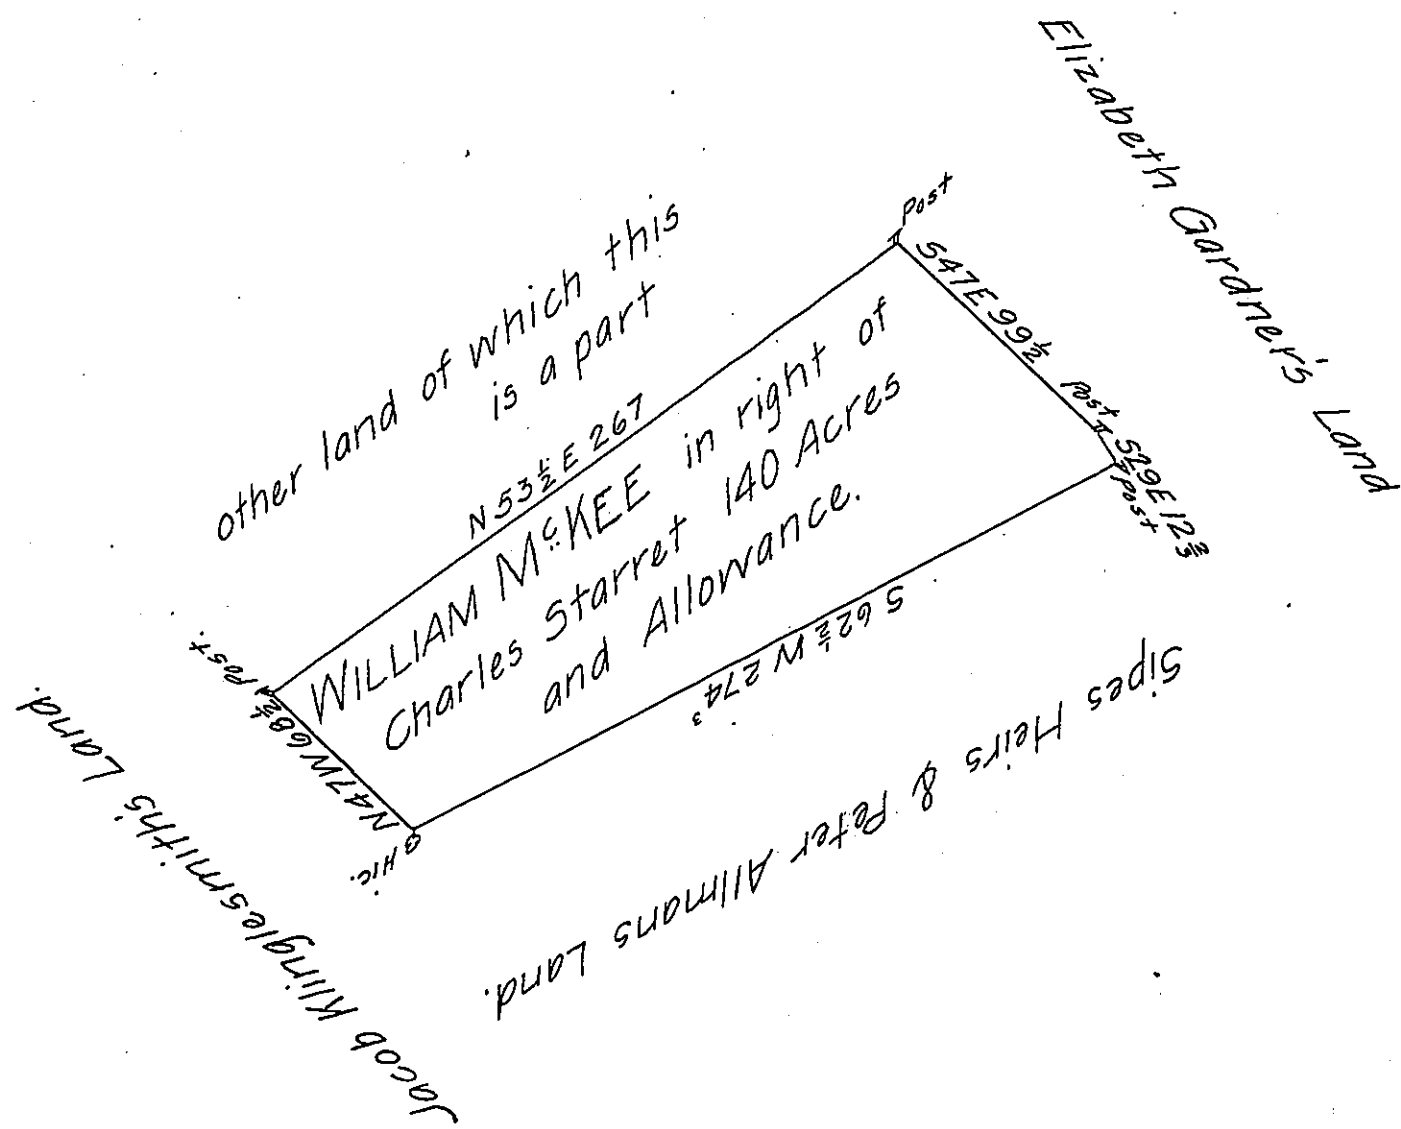 Elizabeth Gardner's Land
other land of which this
is a part
Post
S47E 99½
Post
S29E 12⅔
Post
N 53½ E 267
WILLIAM McKEE in right of
Charles Starret 140 Acres
and Allowance.
S 62½ W 274³
Post.
N47W 68½
Hic.
Sipes Heirs & Peter Allmans Land.
Jacob Klinglesmith's Land.